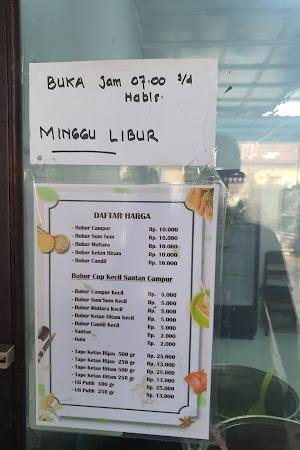 BUKA Jam 07.00 s/d
Habis.
MINGGU LIBUR
DAFTAR HARGA
- Bubur Campur Rp. 10.000
- Bubur Sum Sum Rp. 10.000
- Bubur Mutiara Rp. 10.000
- Bubur Ketan Hitam Rp. 10.000
- Bubur Candil Rp. 10.000
Bubur Cup Kecil Santan Campur
- Bubur Campur Kecil Rp. 5.000
- Bubur Sum/Sum Kecil Rp. 5.000
- Bubur Mutiara Kecil Rp. 5.000
- Bubur Ketan Hitam Kecil Rp. 5.000
- Bubur Candil Kecil Rp. 5.000
- Santan Rp. 2.000
- Gula Rp. 2.000
- Tape Ketan Hijau 500 gr Rp. 25.000
- Tape Ketan Hijau 250 gr Rp. 13.000
- Tape Ketan Hitam 500 gr Rp. 25.000
- Tape Ketan Hitam 250 gr Rp. 13.000
- Uli Putih 500 gr Rp. 25.000
- Uli Putih 250 gr Rp. 13.000